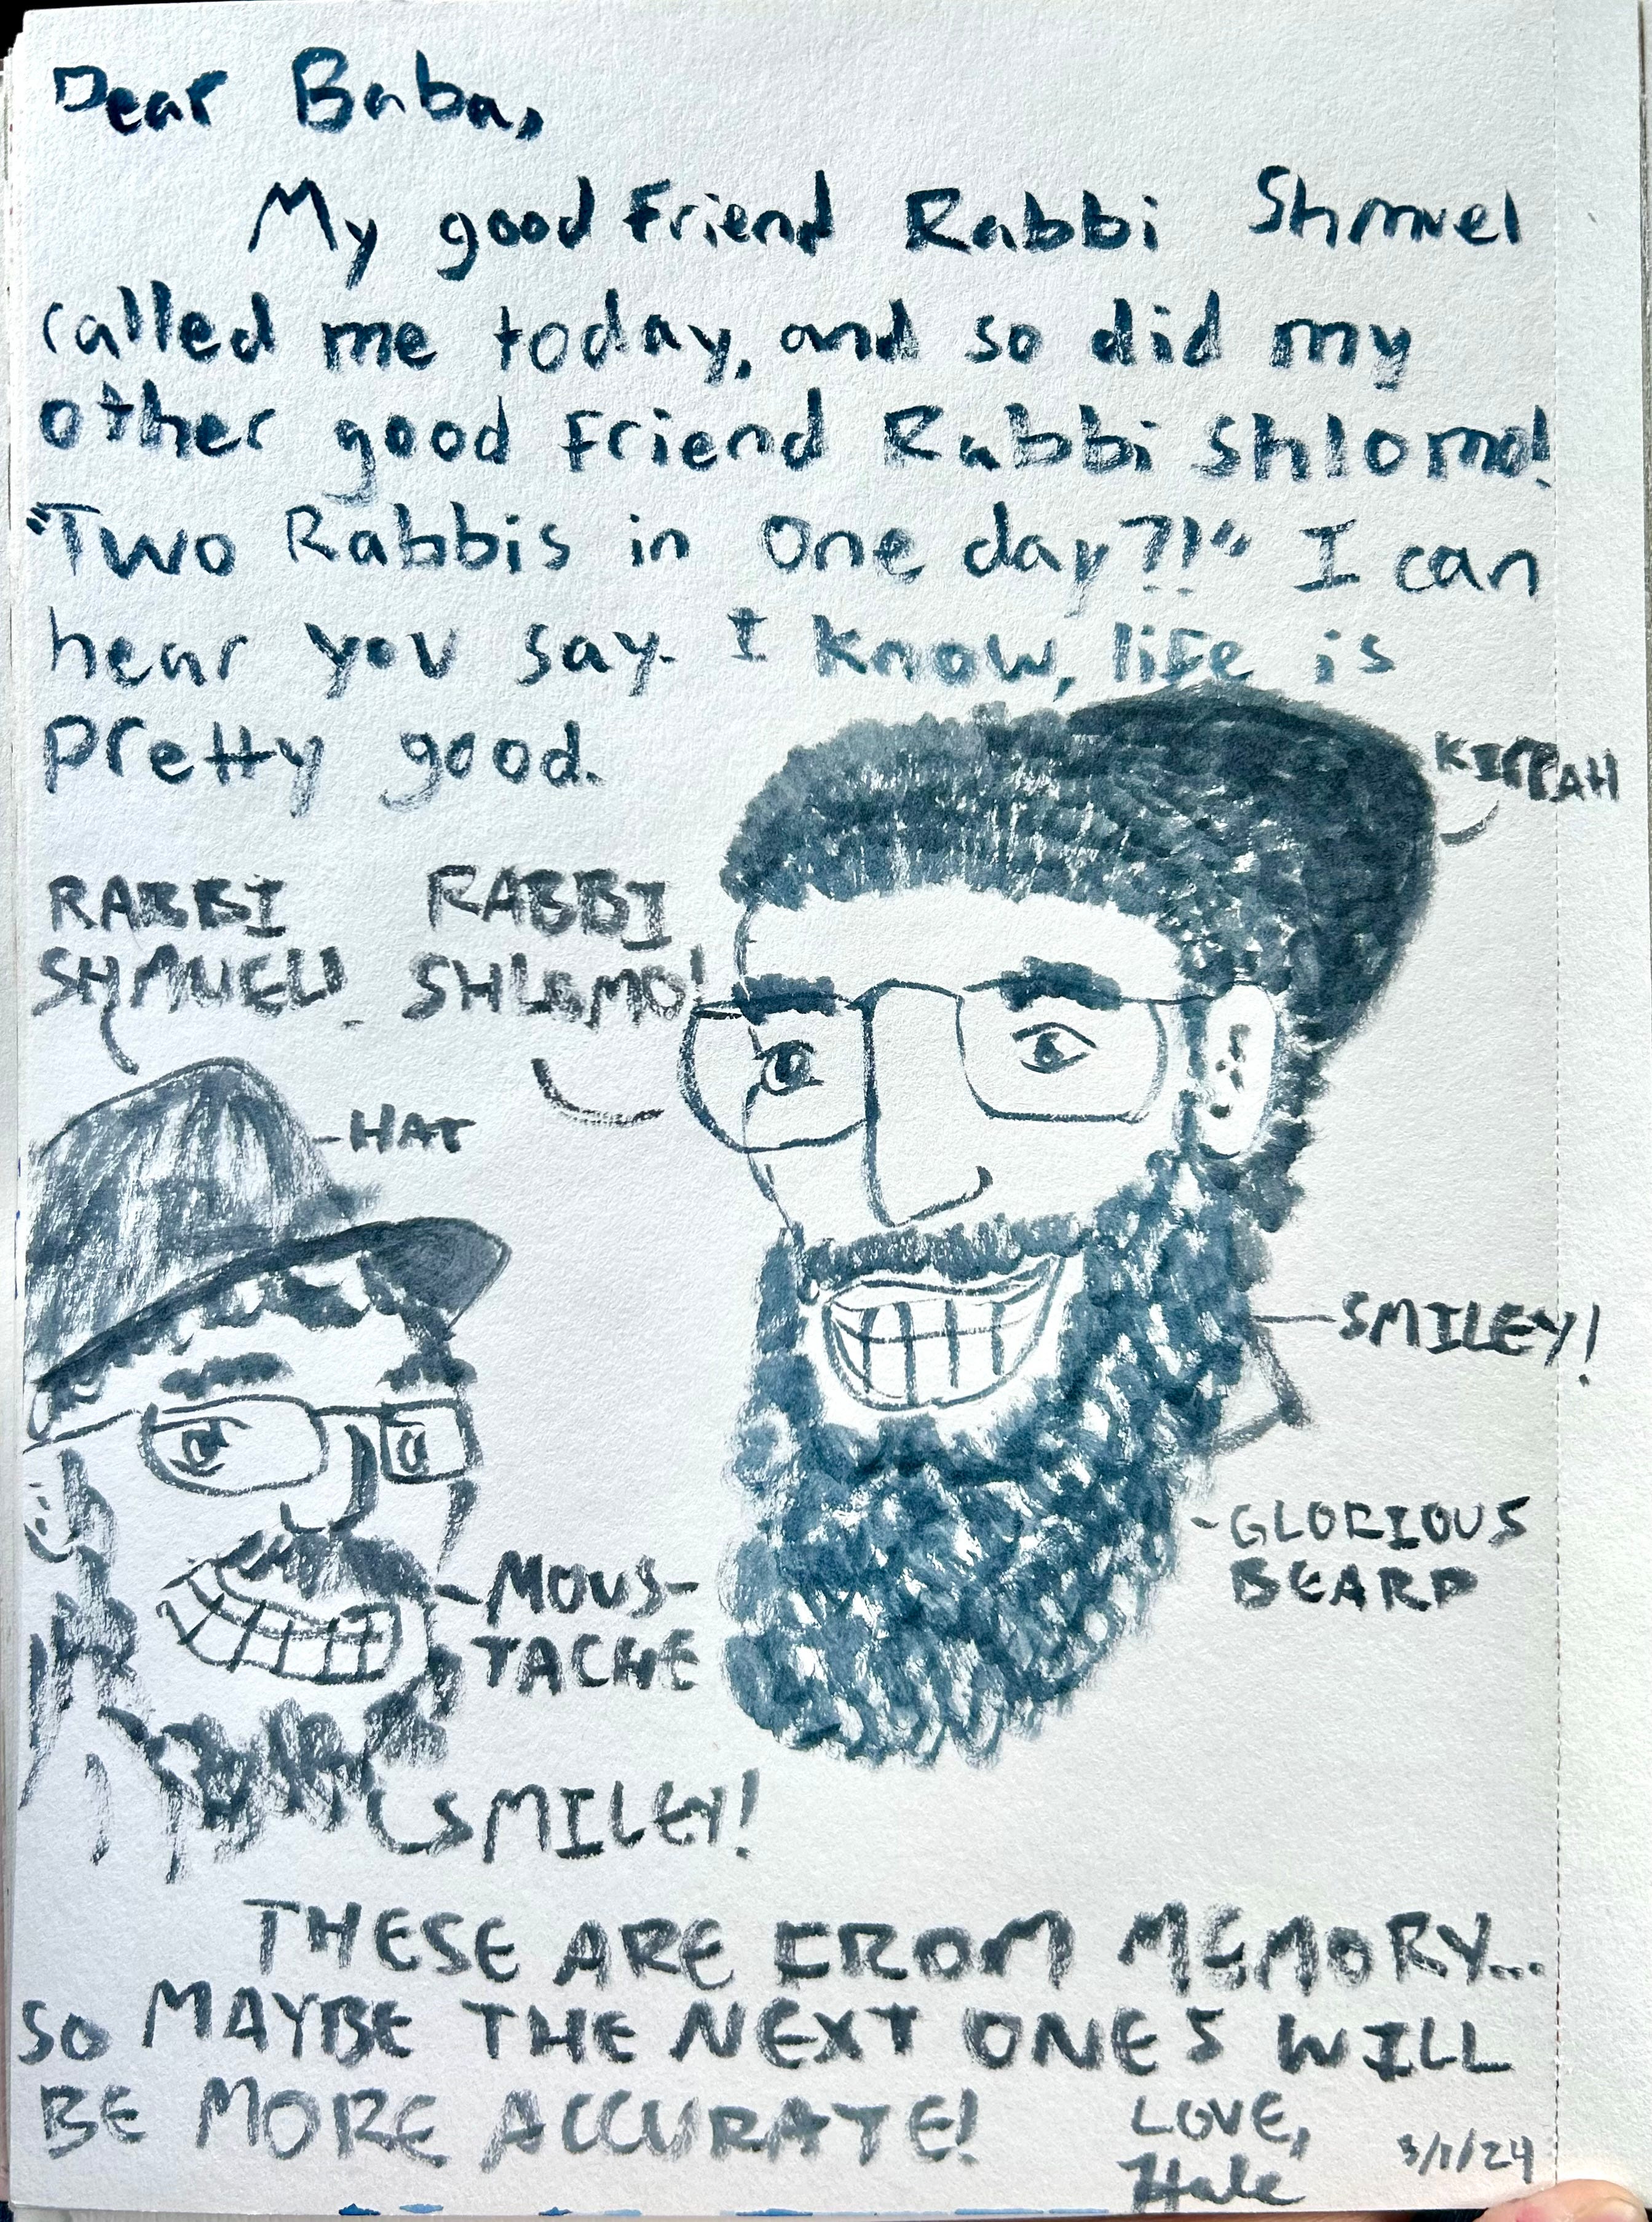 Dear Baba,
My good friend Rabbi Shmuel
called me today, and so did my
other good friend Rabbi Shlomo!
"Two Rabbis in one day?!" I can
hear you say. I know, life is
pretty good.
KIPPAH
RABBI
SHMUEL!
RABBI
SHLOMO!
HAT
SMILEY!
GLORIOUS
BEARD
MOUS-
TACHE
SMILEY!
THESE ARE FROM MEMORY...
SO MAYBE THE NEXT ONES WILL
BE MORE ACCURATE!
LOVE,
Hale
3/1/24